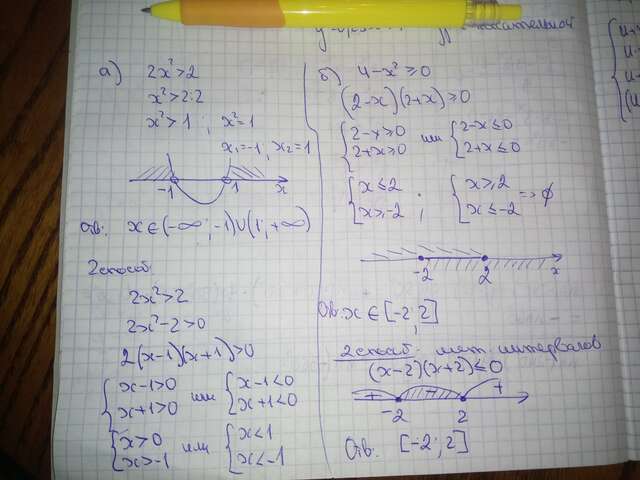 а) 2x²>2
x²>2:2
x²>1 ; x²=1
x₁=-1; x₂=1
-1 1 x
Ов: x∈(-∞;-1)∪(1;+∞)
2 способ
2x²>2
2x²-2>0
2(x-1)(x+1)>0
{x-1>0 {x-1<0
{x+1>0 или {x+1<0
{x>0 {x<1
{x>-1 или {x<-1
б) 4-x²≥0
(2-x)(2+x)≥0
{2-x≥0 {2-x≤0
{2+x≥0 или {2+x≤0
{x≤2 {x≥2
{x≥-2 ; {x≤-2 => ∅
-2 2 x
Ов: x∈[-2;2]
2 способ: мет. интервалов
(x-2)(x+2)≤0
+ -2 - 2 +
Ов: [-2;2]